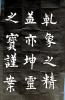 乾象之精
蓋亦坤靈
之寶謹案